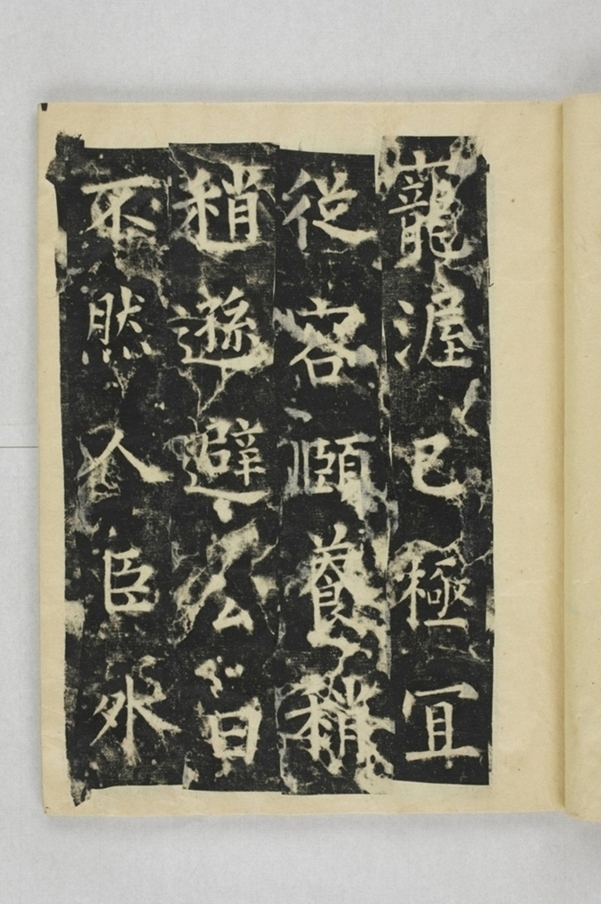 寵渥已極宜
從容頤養稍
稍遜避公曰
不然人臣外